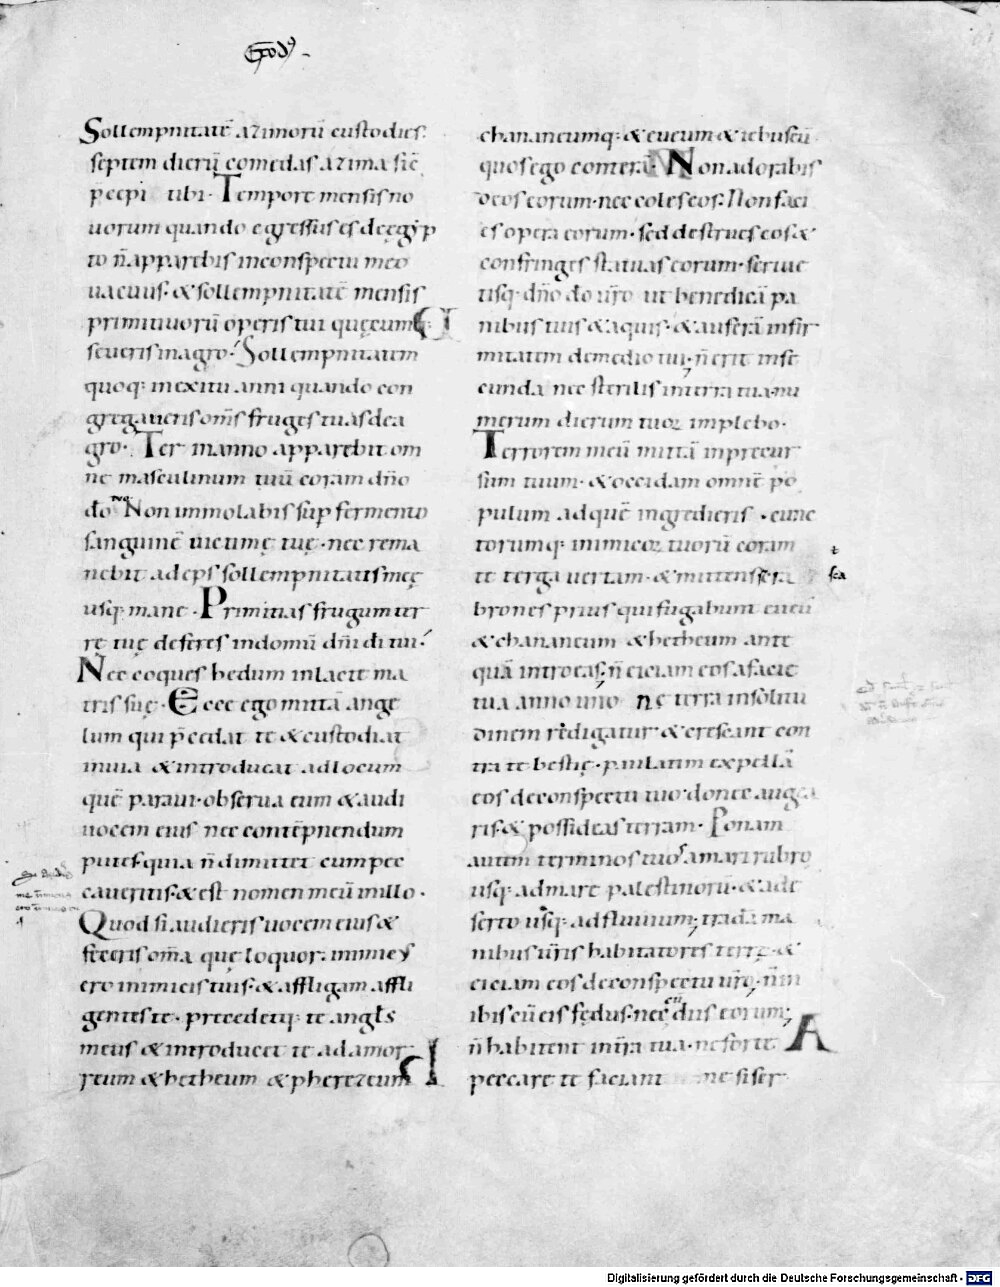 Exod⁹
Sollempnitatē azimorū custodies.
septem dierū comedas azima sic̄
p̄cepi tibi. Tempore mensis no
uorum quando egressus es de ęgyp
to n̄ apparebis inconspectu meo
uacuus. & sollempnitatē mensis
primitiuorū operis tui quęcumq:
seueris in agro. Sollempnitatem
quoq: in exitu anni quando con
gregaueris om̄s fruges tuas de a
gro. Ter in anno apparebit om
ne masculinum tuū coram dn̄o
do tuo. Non immolabis sup fermento
sanguinē uictimę tuę. nec rema
nebit adeps sollempnitatis meę
usq: mane. Primitias frugum ter
rę tuę deferes in domū dn̄i di tui.
Nec coques hedum in lacte ma
tris suę. Ecce ego mittā ange
lum qui p̄cedat te & custodiat
in uia & introducat ad locum
quē paraui. obserua eum & audi
uocem eius nec contēpnendum
putes. quia n̄ dimittet cum pec
caueritis. & est nomen meū in illo.
Quod si audieris uocem eius &
feceris om̄a quę loquor. inimic
ero inimicis tuis. & affligam affli
gentes te. precedetq: te angl̄s
meus & introducet te ad amor
reum & hetheum & pherezeum
chananeumq: & eueum & iebuseū
quos ego conterā. Non adorabis
deos eorum. nec coles eos. Non faci
es opera eorum. sed destrues eos &
confringes statuas eorum. seruie
tisq: dn̄o do ur̄o ut benedicā pa
nibus tuis & aquis. & auferā infir
mitatem de medio tui. n̄ erit infe
cunda nec sterilis in terra tua. nu
merum dierum tuoꝝ implebo.
Terrorem meū mittā in precur
sum tuum. & occidam omnē po
pulum ad quē ingredieris. cunc
torumq: inimicoꝝ tuorū coram
te terga uertam. & mittens
brones prius qui fugabunt eueū
& chananeum & hetheum ante
quā introeas. n̄ eiciam eos a facie
tua anno uno ne terra in solitu
dinem redigatur & crescant con
tra te bestię. paulatim expellā
eos de conspectu tuo. donec augea
ris. & possideas terram. Ponam
autem terminos tuos a mari rubro
usq: ad mare palestinorū. & a de
serto usq: ad fluuium. tradā ma
nibus ur̄is habitatores terrę. &
eiciam eos de conspectu ur̄o. n̄ in
ibis cū eis fędus. nec cū diis eorum.
n̄ habitent in tr̄a tua. ne forte
peccare te faciant in me si ser